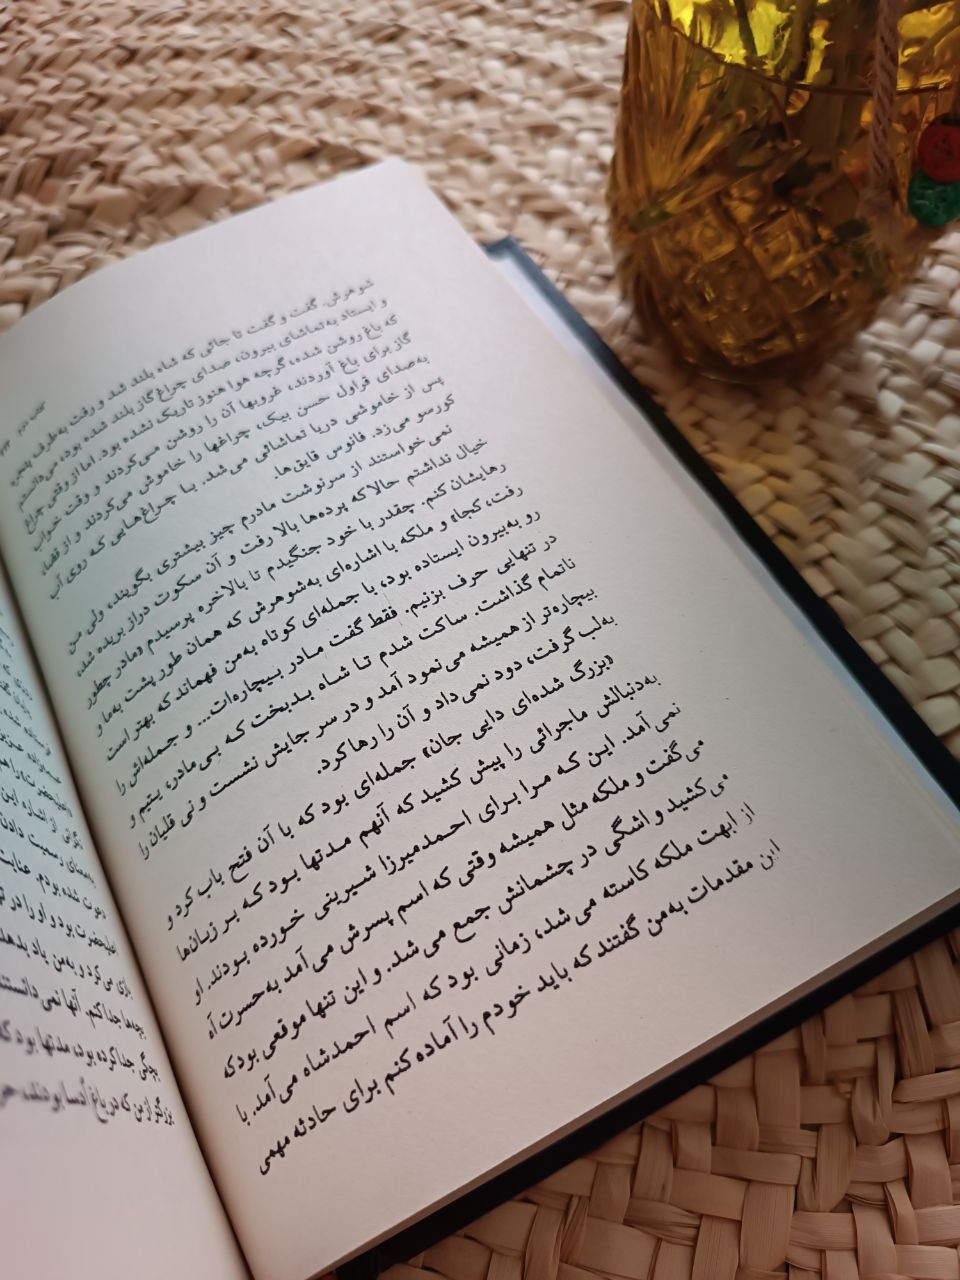 شوهرش. گفت و گفت تا جائی که شاه بلند شد و رفت به‌طرف پنجره
و ایستاد به‌تماشای بیرون، صدای چراغ گاز بلند شده بود، می‌دانستم
که باغ روشن شده، گرچه هوا هنوز تاریک نشده بود. اما از وقتی چراغ
گاز برای باغ آوردند، غروبها آن را روشن می‌کردند و وقت خواب
به‌صدای قراول حسن بیک، چراغها را خاموش می‌کردند و از قضا،
پس از خاموشی دریا تماشائی می‌شد. با چراغ‌هایی که روی آب
کورسو می‌زد. فانوس قایق‌ها.
نمی‌خواستند از سرنوشت مادرم چیز بیشتری بگویند، ولی من
خیال نداشتم حالا که پرده‌ها بالا رفت و آن سکوت دراز بریده شد،
رهایشان کنم. چقدر با خود جنگیدم تا بالاخره پرسیدم «مادر چطور
رفت، کجا» و ملکه با اشاره‌ای به‌شوهرش که همان طور پشت به‌ما و
رو به‌بیرون ایستاده بود، با جمله‌ای کوتاه به‌من فهماند که بهتر است
در تنهایی حرف بزنیم. فقط گفت مادر بیچاره‌ات... و جمله‌اش را
ناتمام گذاشت. ساکت شدم تا شاه بدبخت که بی‌مادر، یتیم و
بیچاره‌تر از همیشه می‌نمود آمد و در سر جایش نشست و نی قلیان را
به‌لب گرفت، دود نمی‌داد و آن را رها کرد.
«بزرگ شده‌ای دایی جان» جمله‌ای بود که با آن فتح باب کرد و
به‌دنبالش ماجرائی را پیش کشید که آنهم مدتها بود که بر زبان‌ها
نمی‌آمد. این که مرا برای احمدمیرزا شیرینی خورده بودند. او
می‌گفت و ملکه مثل همیشه وقتی که اسم پسرش می‌آمد به‌حسرت آه
می‌کشید و اشگی در چشمانش جمع می‌شد. و این تنها موقعی بود که
از ابهت ملکه کاسته می‌شد، زمانی بود که اسم احمدشاه می‌آمد. با
این مقدمات به‌من گفتند که باید خودم را آماده کنم برای حادثه مهمی
دعوت شده بودم. عنایت
بازی می‌کرد و به‌من یاد بدهد
بچه‌ها جدا کنم. آنها نمی‌دانستند
بچگی جدا کرده بود، مدتها بود که
بزرگتر از من که در باغ اُدسا بودند،